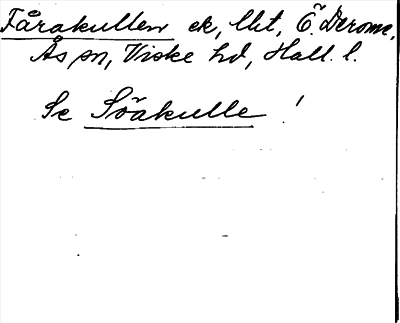 Fårakullen ek, lht, Ö. Derome,
Ås sn, Viske hd, Hall. l.
Se Söakulle !